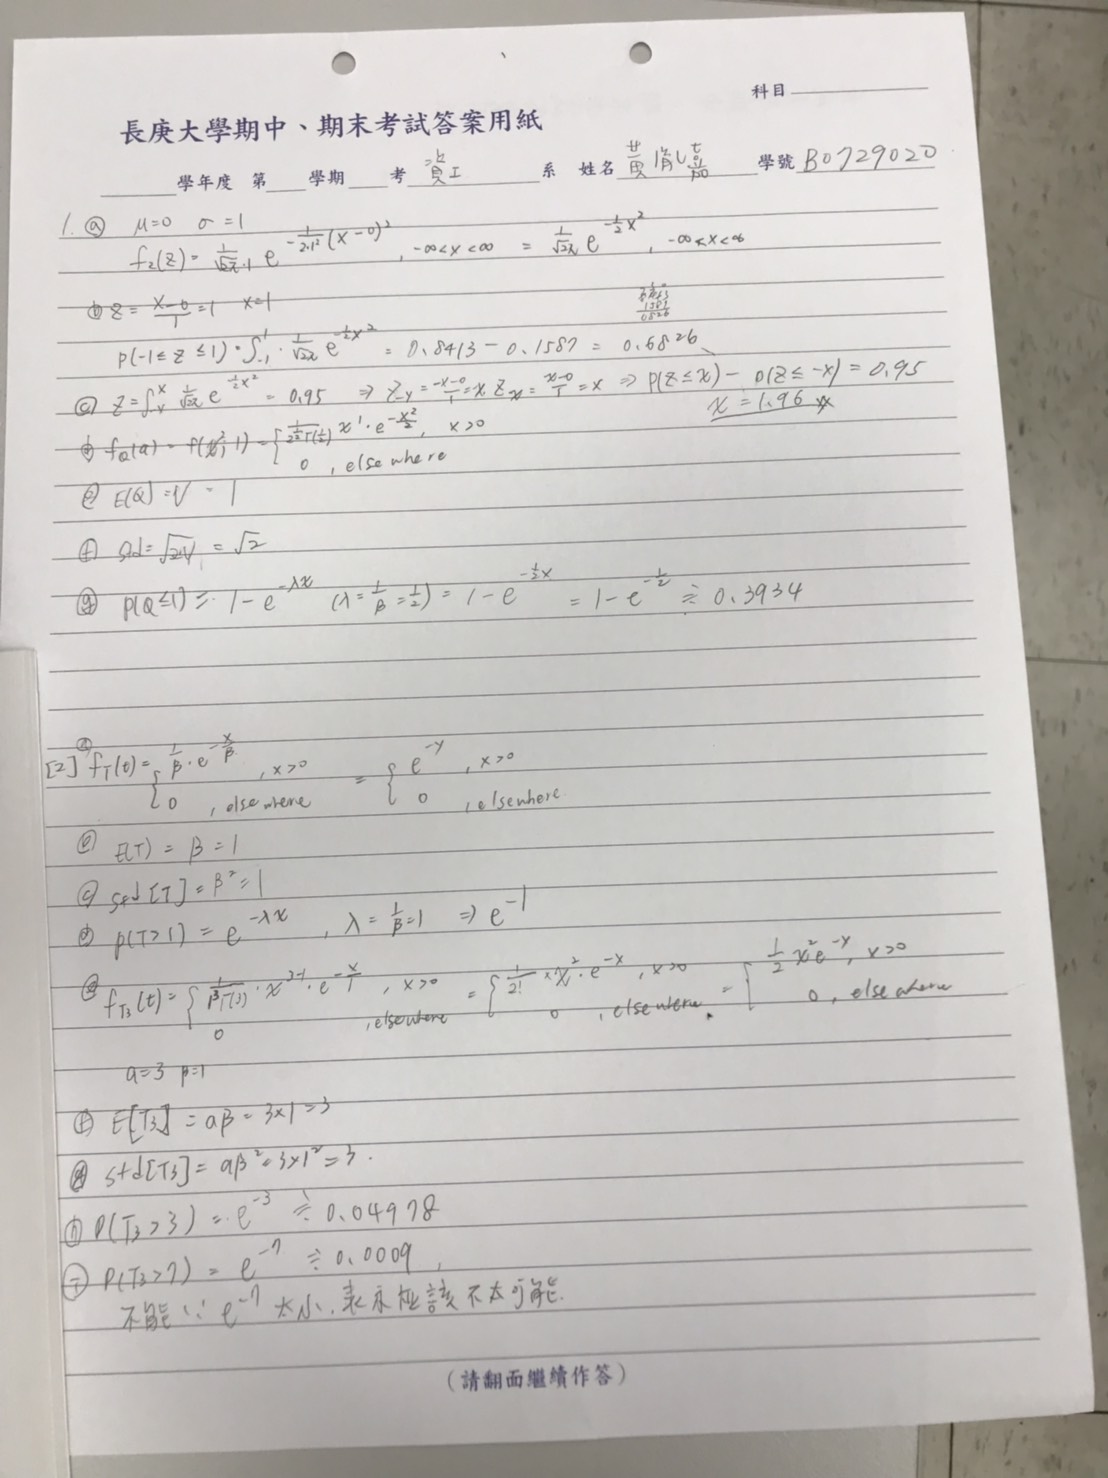 科目
長庚大學期中、期末考試答案用紙
學年度 第 學期 考 資工 系 姓名 黃 學號 B0729020
1. ⓐ μ=0 σ=1
f_Z(z)= 1/(√2π·1) e^(-1/(2·1²)(x-0)²), -∞<x<∞ = 1/√2π e^(-1/2 x²), -∞<x<∞
ⓑ z = (x-0)/1 = 1 x=1
P(-1≤z≤1) = ∫_-1^1 1/√2π e^(-1/2 x²) = 0.8413 - 0.1587 = 0.6826
ⓒ z = ∫ 1/√2π e^(-1/2 x²) = 0.95 ⇒ Z_-x = (-x-0)/1 = x Z_x = (x-0)/1 = x ⇒ P(Z≤x) - P(Z≤-x) = 0.95
x = 1.96
ⓓ f_Q(q) = f(x²;1) = { 1/(2^(1/2) Γ(1/2)) x¹·e^(-x/2), x>0
0, elsewhere
ⓔ E(Q) = V = 1
ⓕ std = √2V = √2
ⓖ P(Q≤1) = 1-e^(-λx) (λ = 1/β = 1/2) = 1-e^(-1/2 x) = 1-e^(-1/2) ≒ 0.3934
[2] ⓐ f_T(t) = { 1/β·e^(-x/β), x>0 = { e^-x, x>0
0, elsewhere 0, elsewhere
ⓑ E(T) = β = 1
ⓒ std[T] = β² = 1
ⓓ P(T>1) = e^(-λx), λ = 1/β = 1 ⇒ e^-1
ⓔ f_T3(t) = { 1/(β³Γ(3))·x^(3-1)·e^(-x/1), x>0 = { 1/2! × x²·e^-x, x>0 = { 1/2 x²e^-x, x>0
0, elsewhere 0, elsewhere 0, elsewhere
a=3 β=1
ⓕ E[T3] = aβ = 3×1 = 3
ⓖ std[T3] = aβ² = 3×1² = 3.
ⓗ P(T3>3) = e^-3 ≒ 0.04978
ⓘ P(T3>7) = e^-7 ≒ 0.0009,
不能 ∵ e^-7 太小, 表示應該不太可能.
(請翻面繼續作答)